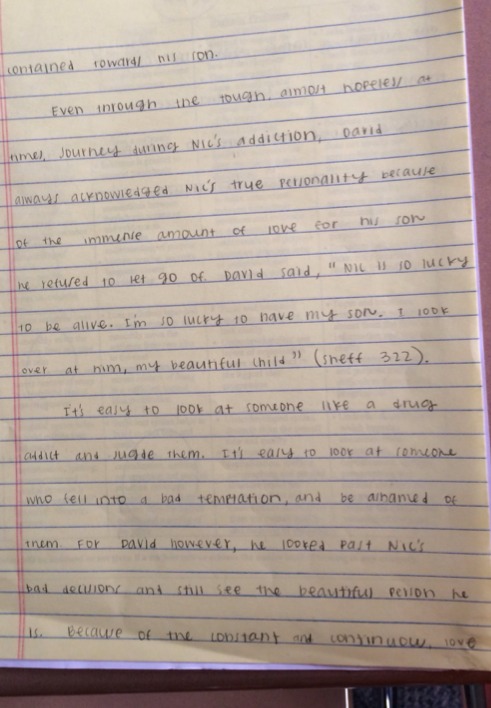 contained towards his son.
Even through the tough, almost hopeless at
times, journey during Nic's addiction, David
always acknowledged Nic's true personality because
of the immense amount of love for his son
he refused to let go of. David said, "Nic is so lucky
to be alive. I'm so lucky to have my son. I look
over at him, my beautiful child" (Sheff 322).
It's easy to look at someone like a drug
addict and jugde them. It's easy to look at someone
who fell into a bad temptation, and be ahamed of
them. For David however, he looked past Nic's
bad decisions and still see the beautiful person he
is. Because of the constant and continuous, love